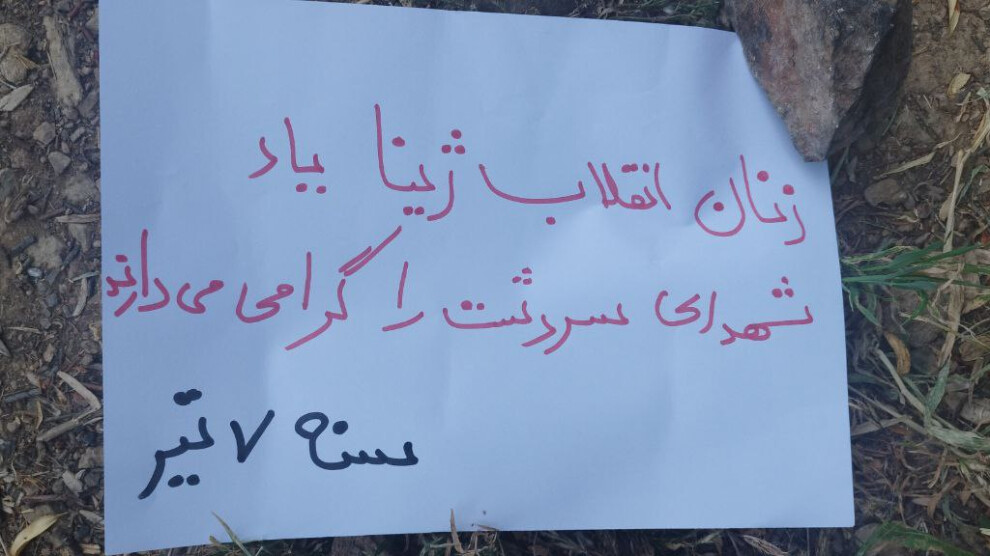 زنان انقلاب ژینا یاد
شهدای سردشت را گرامی می دارند
سنه ۷ تیر